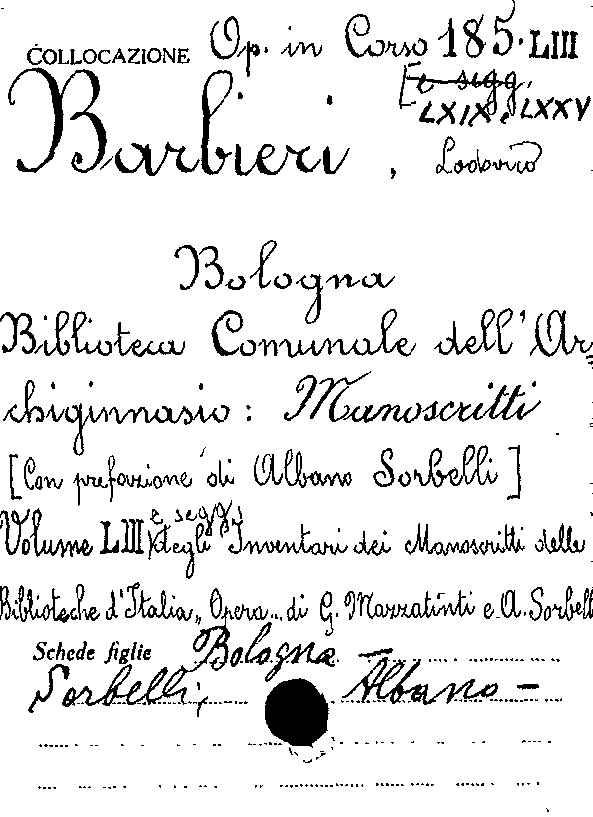 COLLOCAZIONE Op. in Corso 185. LIII
[e segg.
LXIX, LXXV
Barbieri, Lodovico
Bologna
Biblioteca Comunale dell'Ar=
chiginnasio: Manoscritti
[Con prefazione di Albano Sorbelli]
e segg.
Volume LIII degli Inventari dei Manoscritti delle
Biblioteche d'Italia„ Opera di G. Mazzatinti e A. Sorbelli
Schede figlie Bologna —
Sorbelli, Albano —